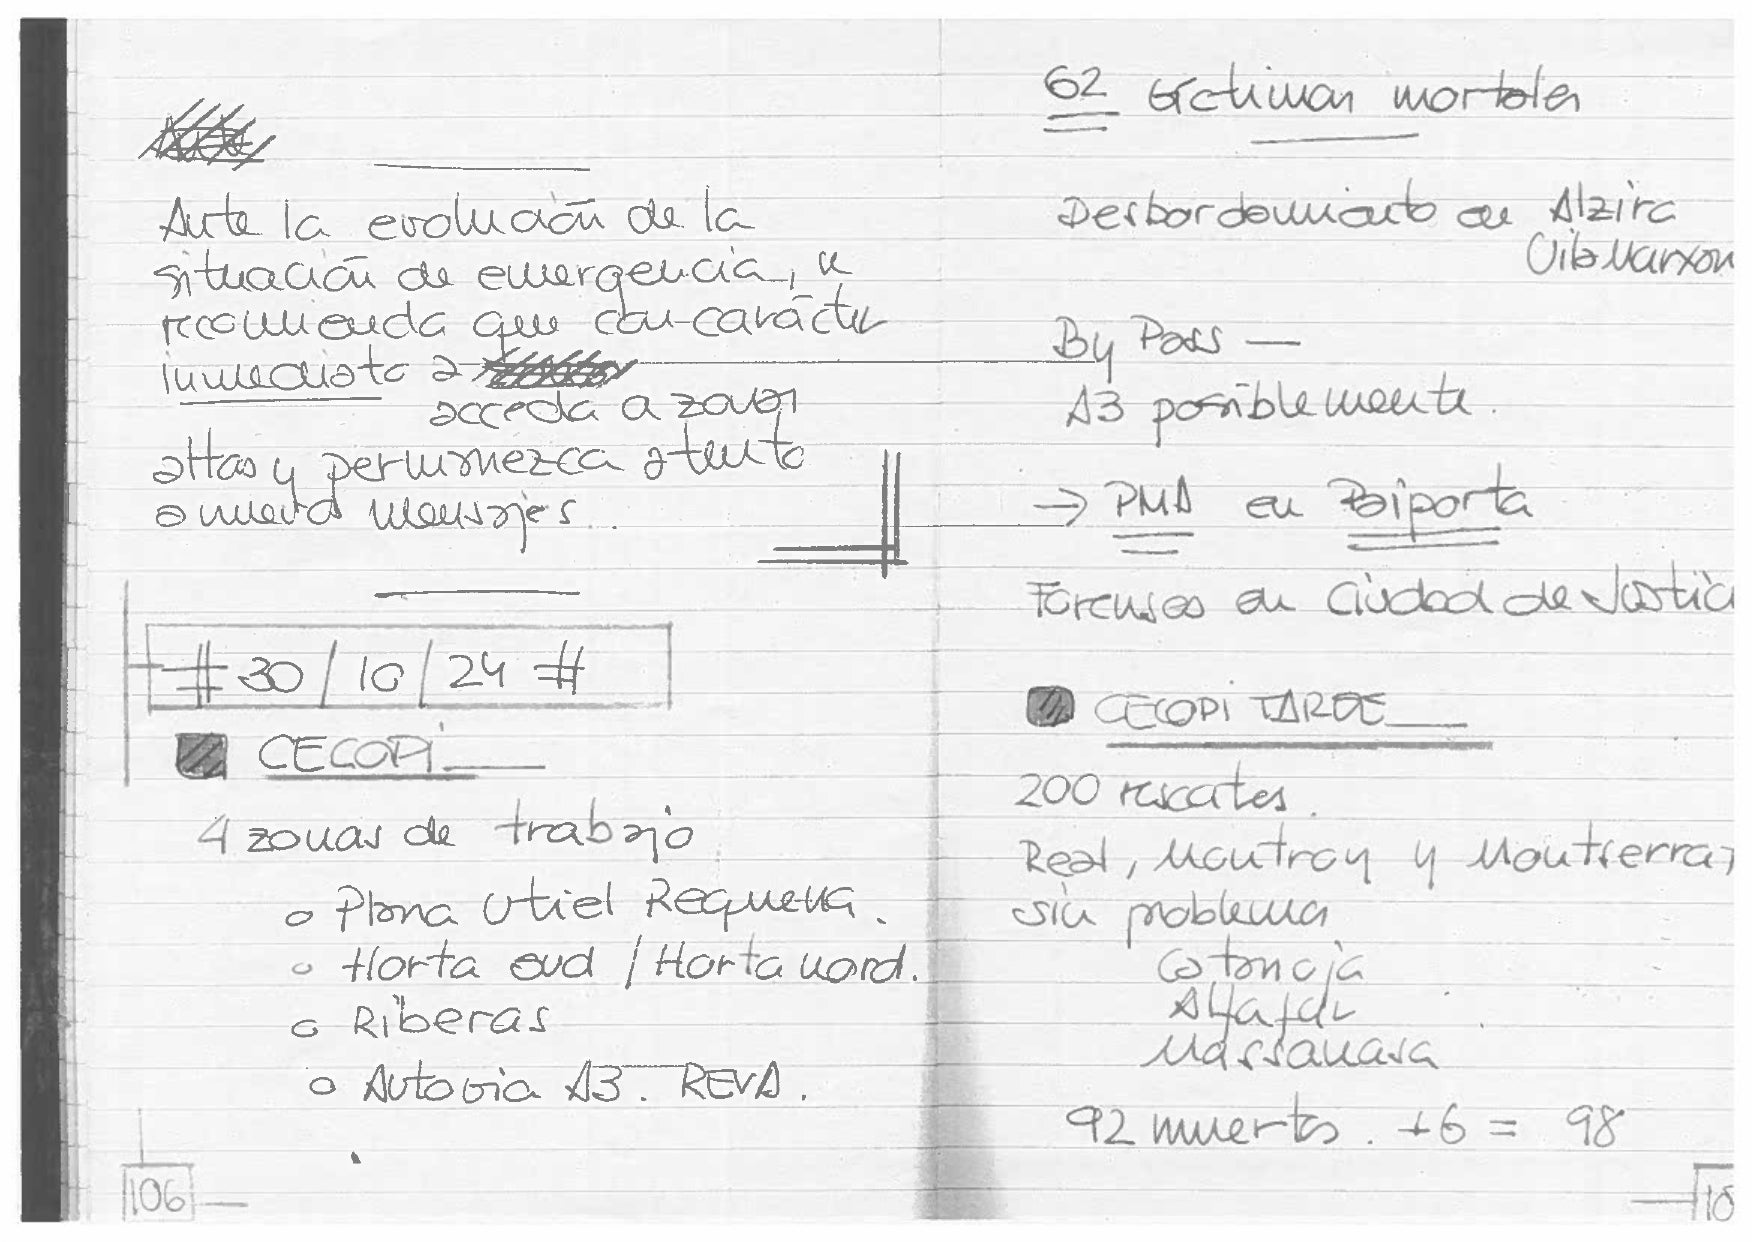 Ante la evolución de la
situación de emergencia, se
recomienda que con carácter
inmediato a
acceda a zonas
altas y permanezca atento
a nuevos mensajes..
# 30/10/24 #
CECOPI
4 zonas de trabajo
o Plana Utiel Requena.
o Horta sud / Horta nord.
o Riberas
o Autovia A3. REVA.
106
62 víctimas mortales
Desbordamiento en Alzira
By Pass —
A3 posiblemente.
→ PMA en Paiporta
Forenses en Ciudad de Justicia
CECOPI TARDE
200 rescates.
Real, Montroy y Montserrat
sin problemas
Catarroja
Alfafar
Massanasa
92 muertos. +6 = 98
10